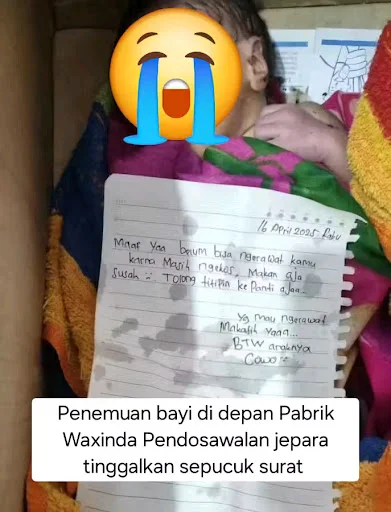 16 April 2025 Rabu
Maaf Yaa belum bisa ngerawat kamu
karna Masih ngekos, Makan aja
susah :. Tolong titipin ke Panti ajaa..
Yg mau ngerawat
Makasih Yaaa...
BTW anaknya
Cowo
Penemuan bayi di depan Pabrik
Waxinda Pendosawalan jepara
tinggalkan sepucuk surat